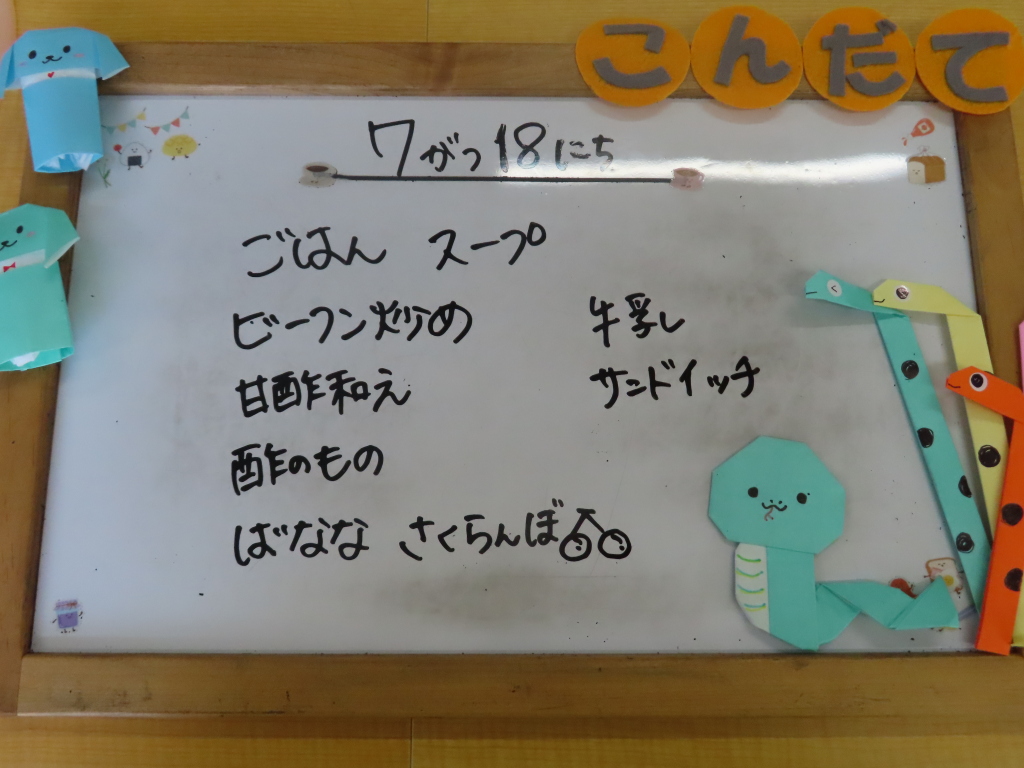 こんだて
7がつ18にち
ごはん スープ
ビーフン炒め
甘酢和え
酢のもの
ばなな さくらんぼ
牛乳
サンドイッチ